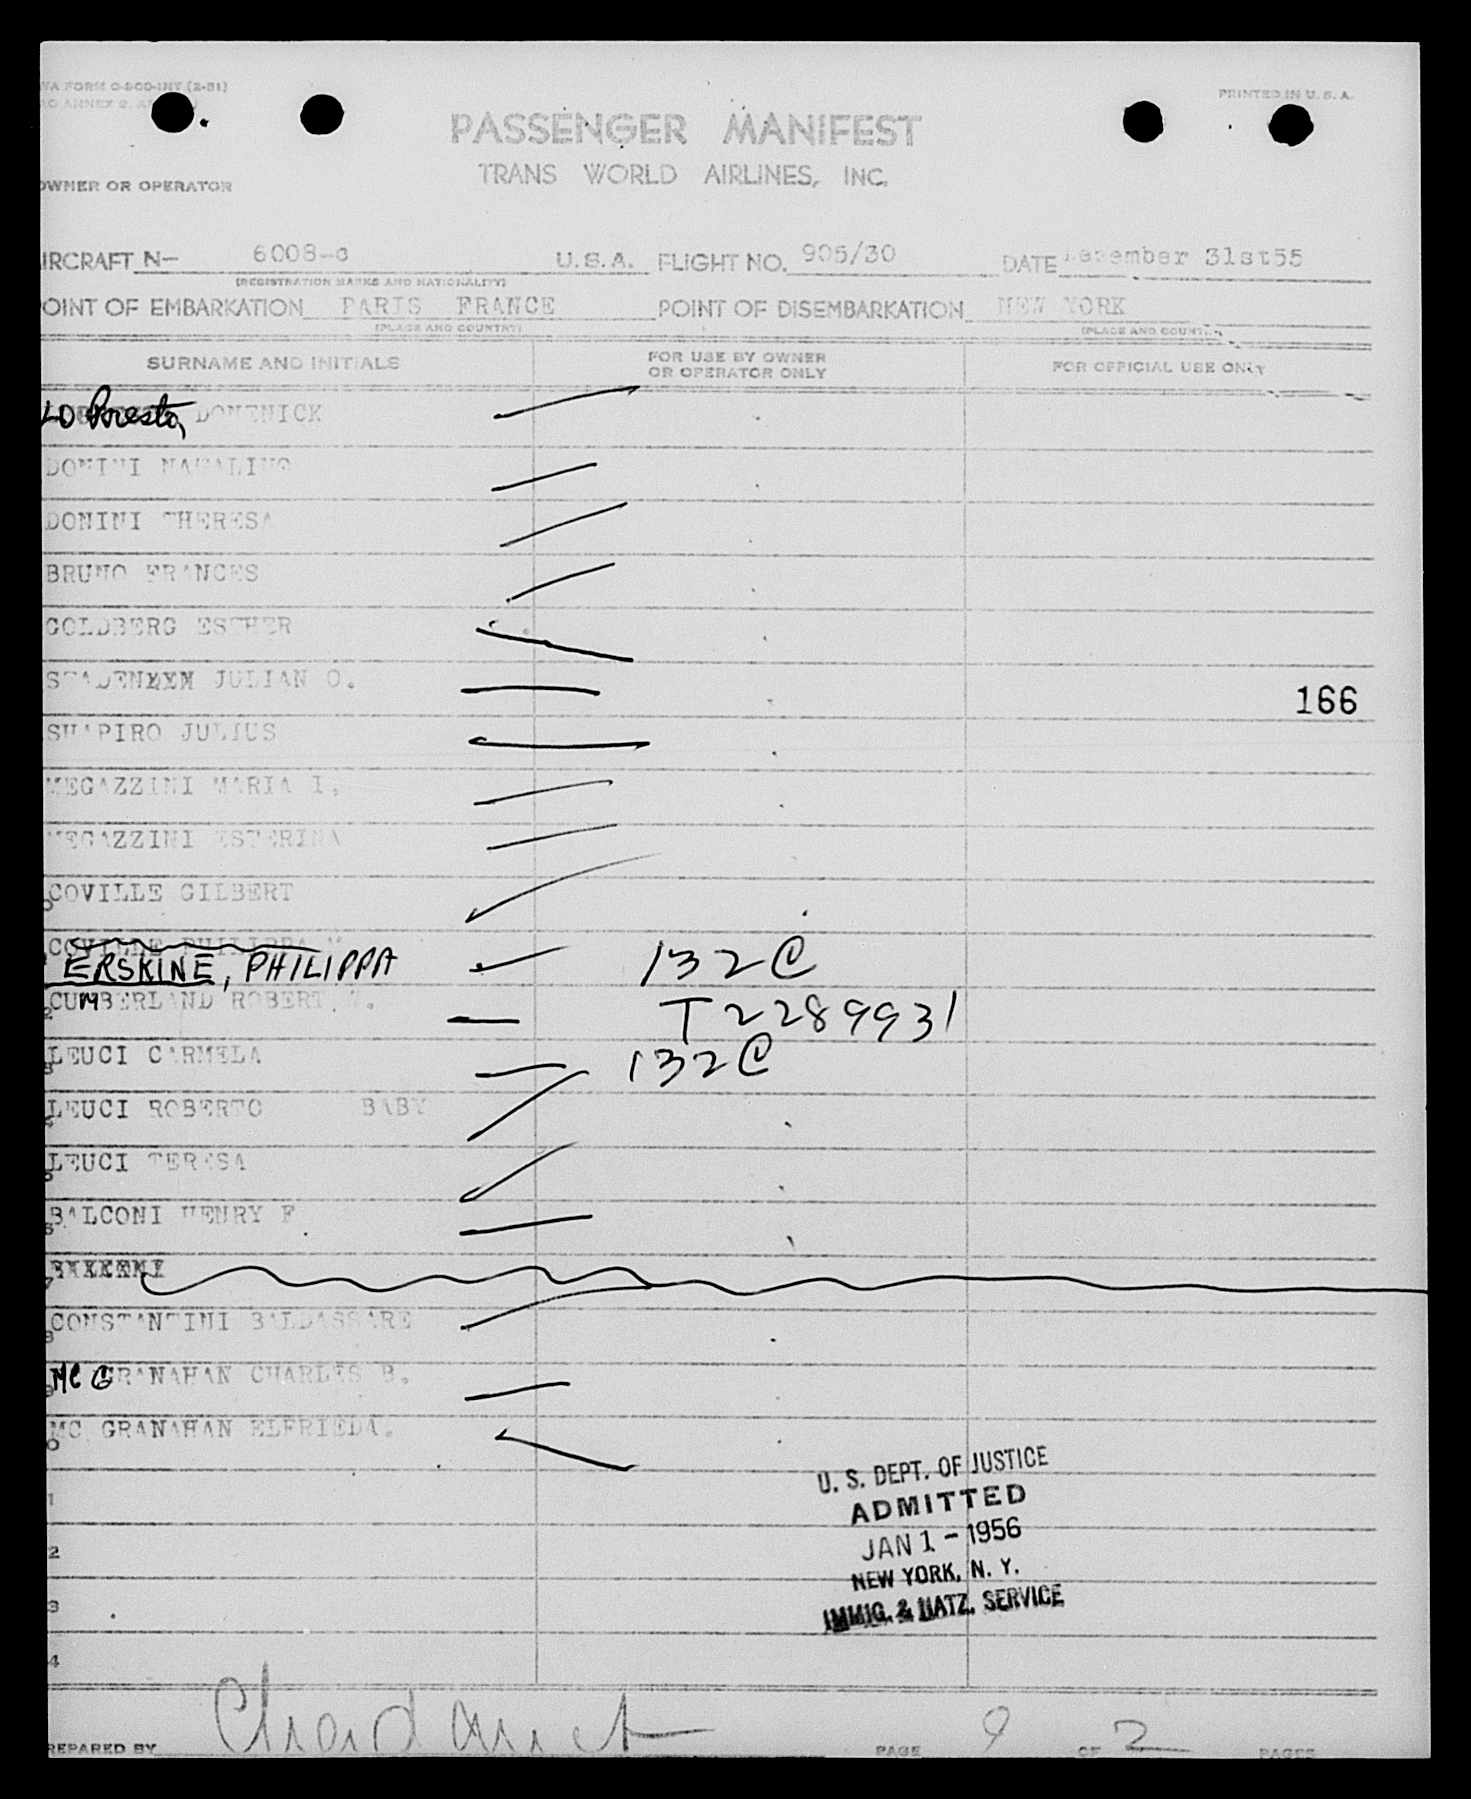 WA FORM O-800-INT (2-51)
PRINTED IN U. S. A.
PASSENGER MANIFEST
TRANS WORLD AIRLINES, INC.
OWNER OR OPERATOR
IRCRAFT N- 6008-c U.S.A. FLIGHT NO. 905/30 DATE December 31st55
(REGISTRATION MARKS AND NATIONALITY)
OINT OF EMBARKATION PARIS FRANCE POINT OF DISEMBARKATION NEW YORK
(PLACE AND COUNTRY) (PLACE AND COUNTRY)
SURNAME AND INITIALS FOR USE BY OWNER OR OPERATOR ONLY FOR OFFICIAL USE ONLY
LO Presto, DOMENICK
DOMINI NATALINO
DOMINI THERESA
BRUNO FRANCES
GOLDBERG ESTHER
JULIAN O.
166
SHAPIRO JULIUS
MEGAZZINI MARIA I.
MEGAZZINI ESTERINA
COVILLE GILBERT
COVILLE PHILIPPA
ERSKINE, PHILIPPA 132@
CUMBERLAND ROBERT W. T2289931
LEUCI CARMELA 132@
LEUCI ROBERTO BABY
LEUCI TERESA
BALCONI HENRY F
CONSTANTINI BALDASSARE
Mc GRANAHAN CHARLES B.
MC GRANAHAN ELFRIEDA.
U. S. DEPT. OF JUSTICE
ADMITTED
JAN 1 - 1956
NEW YORK, N. Y.
IMMIG. & NATZ. SERVICE
1
2
3
4
REPARED BY PAGE OF 2 PAGES